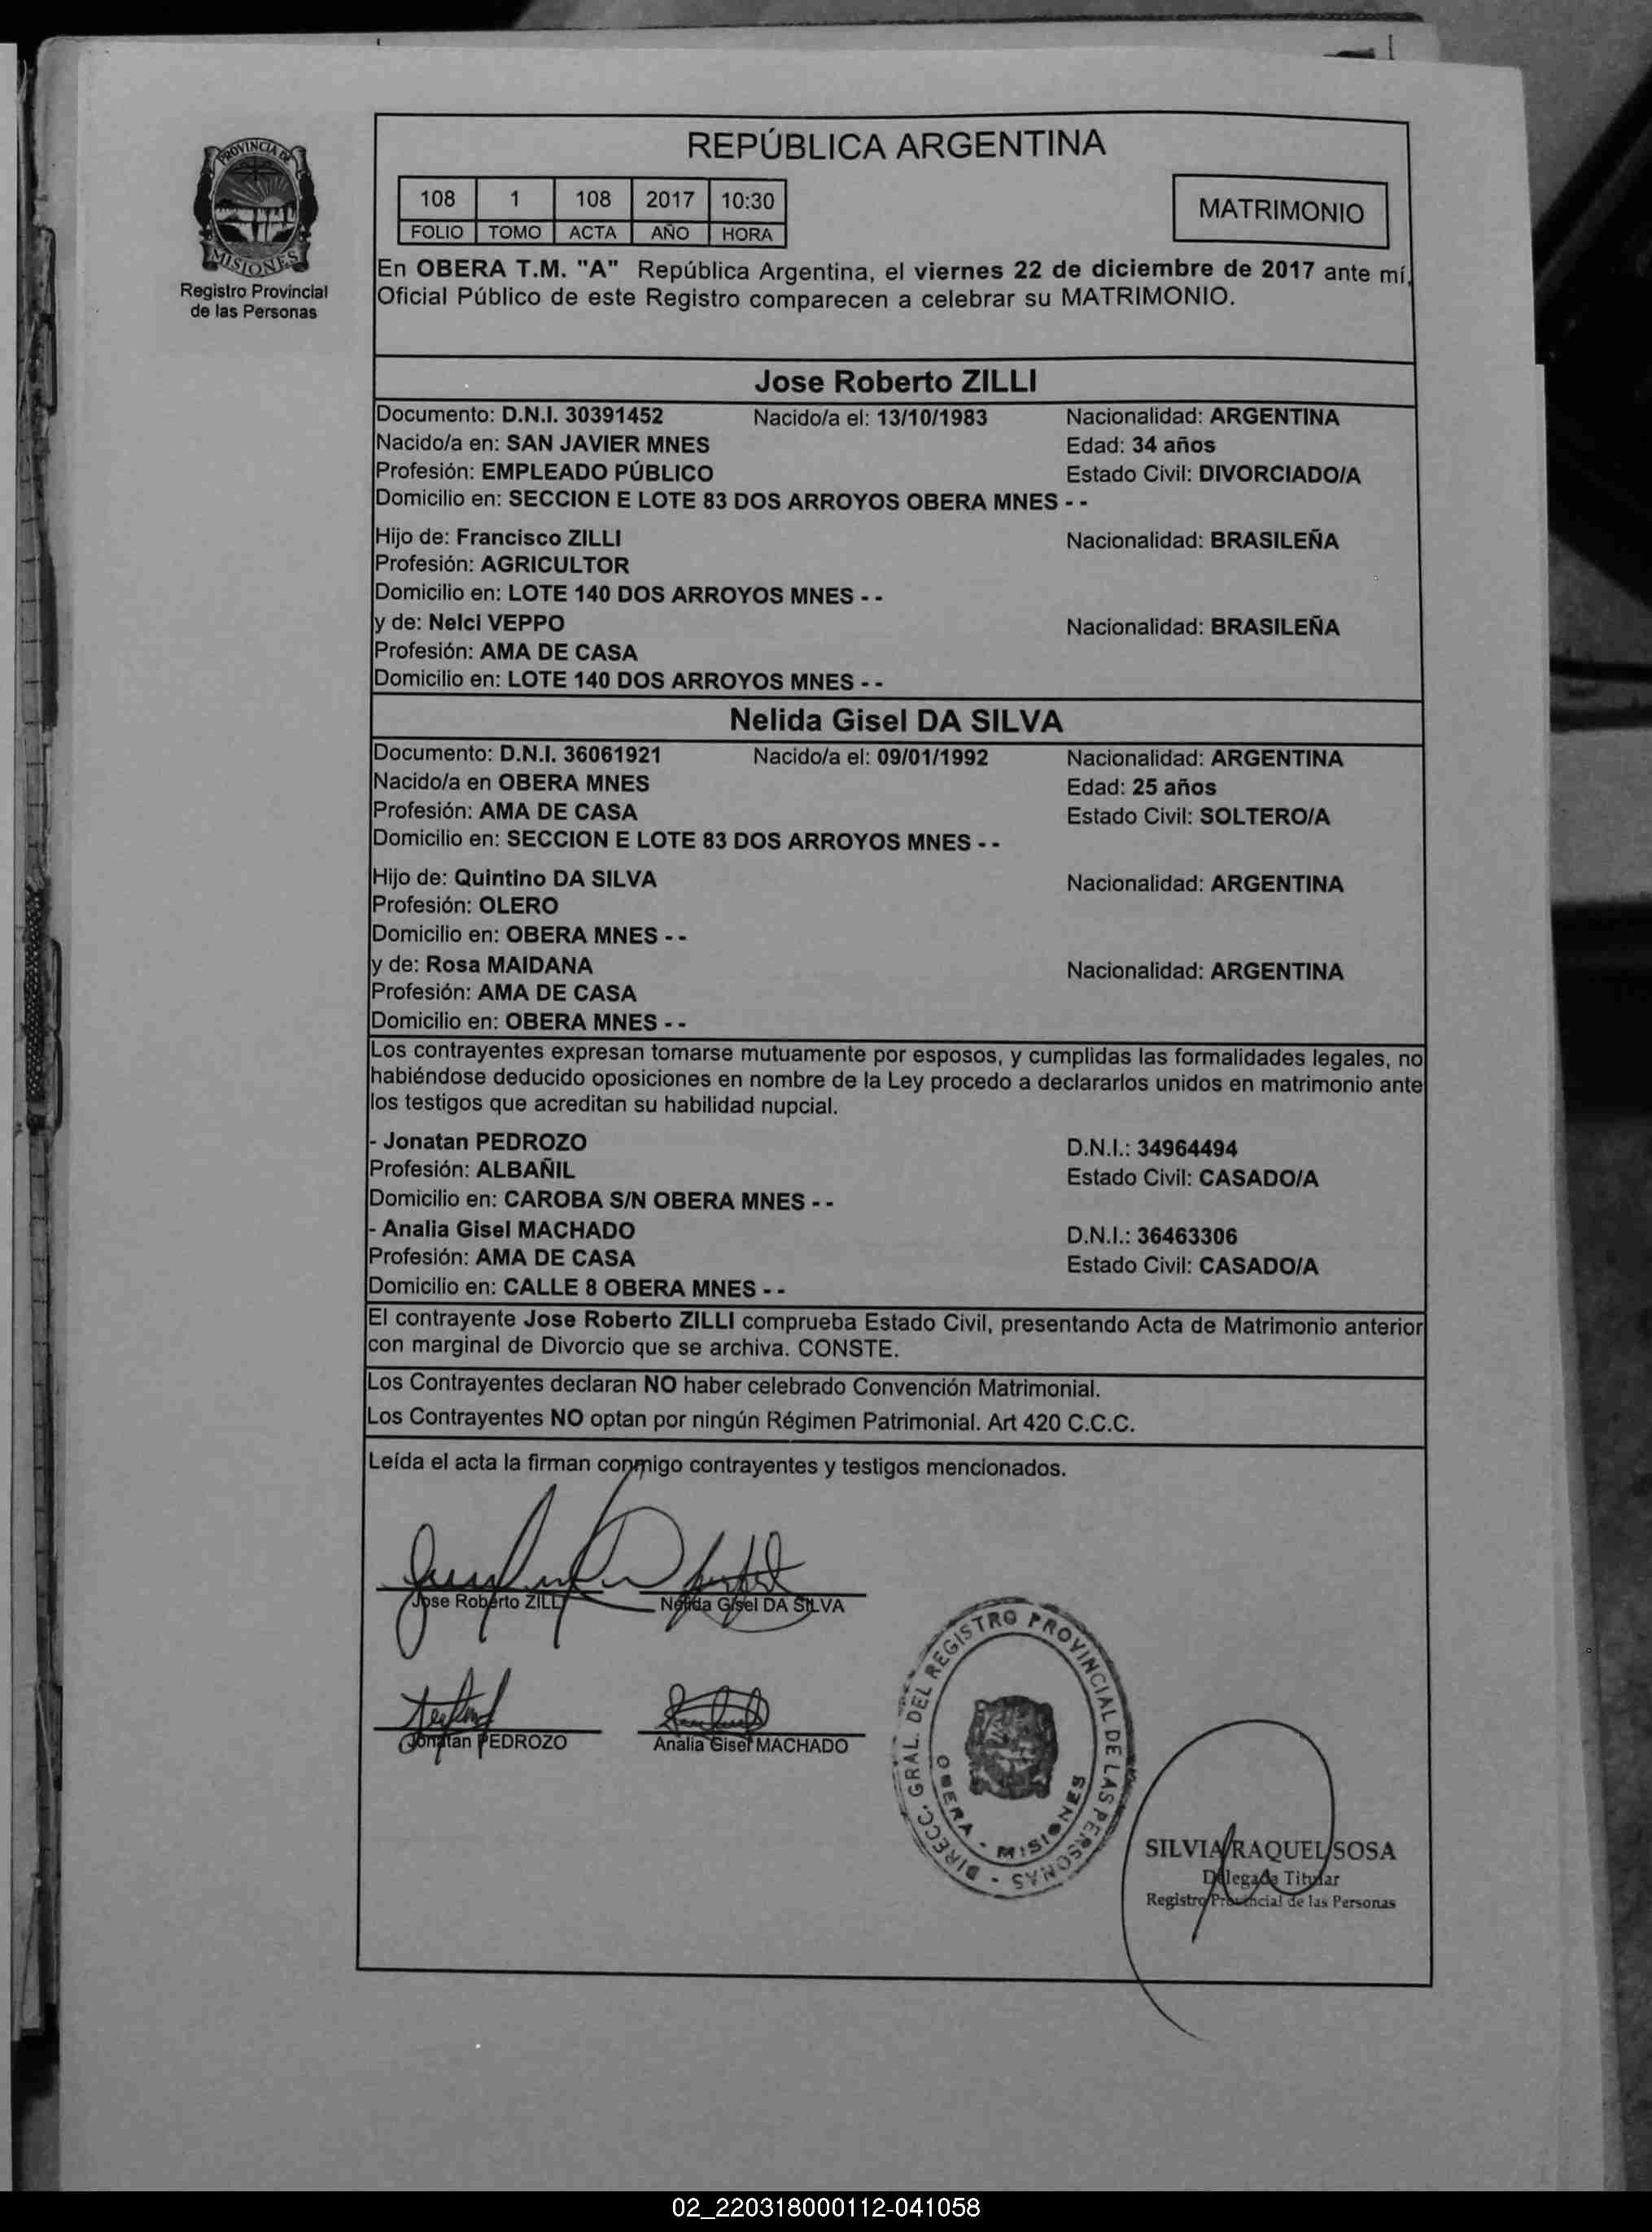 REPÚBLICA ARGENTINA
PROVINCIA DE
MISIONES
Registro Provincial
de las Personas
108 1 108 2017 10:30
FOLIO TOMO ACTA AÑO HORA
MATRIMONIO
En OBERA T.M. "A" República Argentina, el viernes 22 de diciembre de 2017 ante mí,
Oficial Público de este Registro comparecen a celebrar su MATRIMONIO.
Jose Roberto ZILLI
Documento: D.N.I. 30391452 Nacido/a el: 13/10/1983 Nacionalidad: ARGENTINA
Nacido/a en: SAN JAVIER MNES Edad: 34 años
Profesión: EMPLEADO PÚBLICO Estado Civil: DIVORCIADO/A
Domicilio en: SECCION E LOTE 83 DOS ARROYOS OBERA MNES - -
Hijo de: Francisco ZILLI Nacionalidad: BRASILEÑA
Profesión: AGRICULTOR
Domicilio en: LOTE 140 DOS ARROYOS MNES - -
y de: Nelci VEPPO Nacionalidad: BRASILEÑA
Profesión: AMA DE CASA
Domicilio en: LOTE 140 DOS ARROYOS MNES - -
Nelida Gisel DA SILVA
Documento: D.N.I. 36061921 Nacido/a el: 09/01/1992 Nacionalidad: ARGENTINA
Nacido/a en OBERA MNES Edad: 25 años
Profesión: AMA DE CASA Estado Civil: SOLTERO/A
Domicilio en: SECCION E LOTE 83 DOS ARROYOS MNES - -
Hijo de: Quintino DA SILVA Nacionalidad: ARGENTINA
Profesión: OLERO
Domicilio en: OBERA MNES - -
y de: Rosa MAIDANA Nacionalidad: ARGENTINA
Profesión: AMA DE CASA
Domicilio en: OBERA MNES - -
Los contrayentes expresan tomarse mutuamente por esposos, y cumplidas las formalidades legales, no
habiéndose deducido oposiciones en nombre de la Ley procedo a declararlos unidos en matrimonio ante
los testigos que acreditan su habilidad nupcial.
- Jonatan PEDROZO D.N.I.: 34964494
Profesión: ALBAÑIL Estado Civil: CASADO/A
Domicilio en: CAROBA S/N OBERA MNES - -
- Analia Gisel MACHADO D.N.I.: 36463306
Profesión: AMA DE CASA Estado Civil: CASADO/A
Domicilio en: CALLE 8 OBERA MNES - -
El contrayente Jose Roberto ZILLI comprueba Estado Civil, presentando Acta de Matrimonio anterior
con marginal de Divorcio que se archiva. CONSTE.
Los Contrayentes declaran NO haber celebrado Convención Matrimonial.
Los Contrayentes NO optan por ningún Régimen Patrimonial. Art 420 C.C.C.
Leída el acta la firman conmigo contrayentes y testigos mencionados.
Jose Roberto ZILLI Nelida Gisel DA SILVA
Jonatan PEDROZO Analia Gisel MACHADO
DIRECC. GRAL. DEL REGISTRO PROVINCIAL DE LAS PERSONAS -
OBERA - MISIONES
SILVIA RAQUEL SOSA
Delegada Titular
Registro Provincial de las Personas
02_220318000112-041058